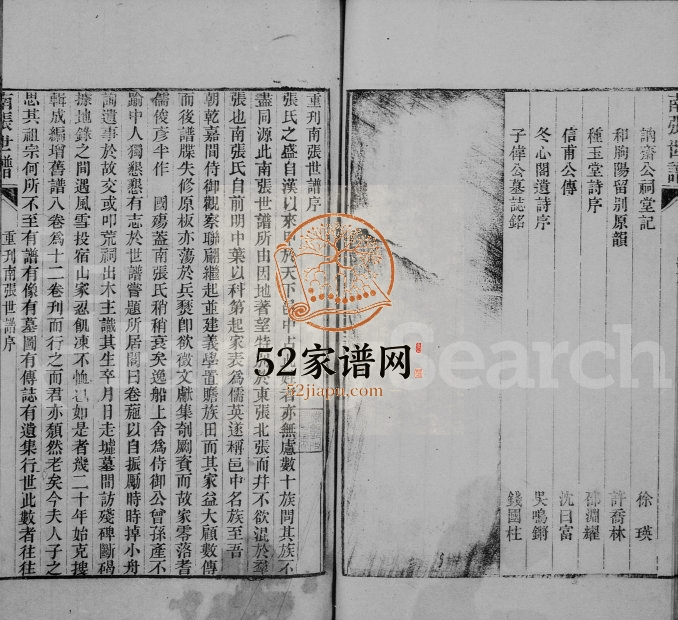 南張世譜
訥齋公祠堂記
徐瑛
和朐陽留別原韻
許喬林
種玉堂詩序
邵淵耀
信甫公傳
沈曰富
冬心閣遺詩序
吳鳴鏘
子偉公墓誌銘
錢國柱
重刋南張世譜序
張氏之盛自漢以來 於天下邑中占 姓者亦無慮數十族問其族不
盡同源此南張世譜所由因地著望特 於東張北張而幷不欲混於羣
張也南張氏自前明中葉以科第起家表爲儒英遂稱邑中名族至吾
朝乾嘉間侍御觀察聯翩繼起並建義學置贍族田而其家益大顧數傳
而後譜牒失修原板亦蕩於兵燹卽欲徵文獻集剞劂資而故家零落耆
儒俊彥半作 國殤蓋南張氏稍稍衰矣逸船上舍爲侍御公曾孫產不
踰中人獨懇懇有志於世譜嘗題所居閣曰卷葹以自振勵時時掉小舟
詢遺事於故交或叩荒祠出木主識其生卒月日走墟墓間訪殘碑斷碣
據地錄之間遇風雪投宿山家忍飢凍不恤也如是者幾二十年始克搜
輯成編增舊譜八卷爲十二卷刋而行之而君亦頹然老矣今夫人子之
思其祖宗何所不至有譜有像有墓圖有傳誌有遺集行世此數者往往
南張世譜
重刋南張世譜序
52家谱网
52jiapu.com
Search